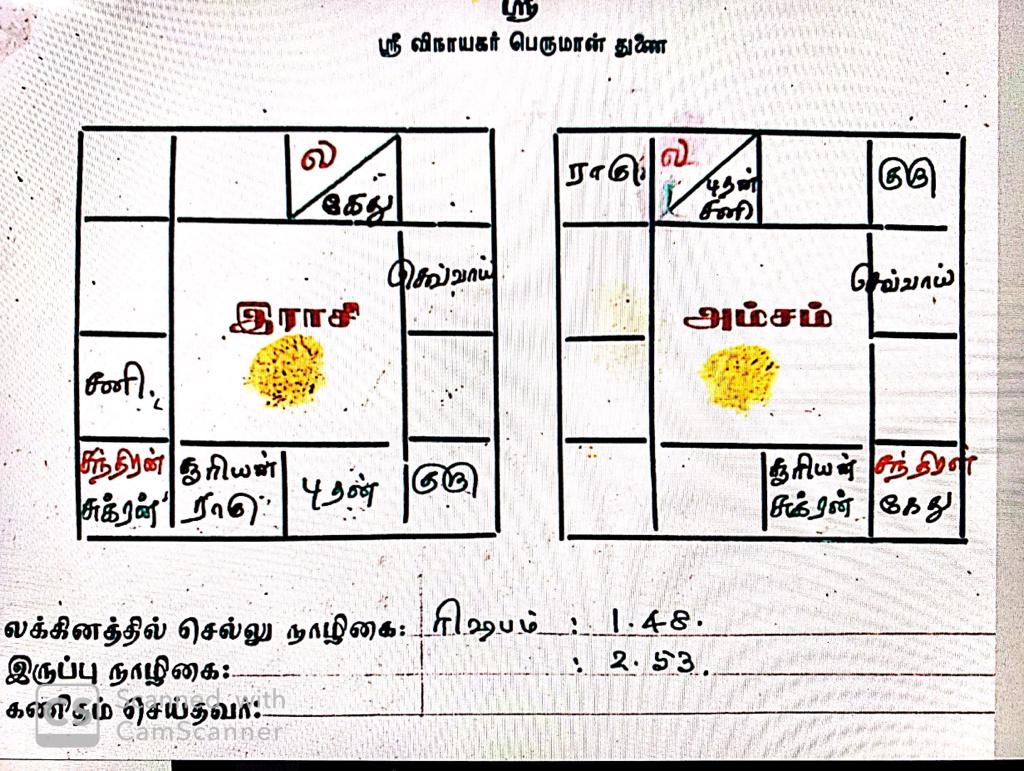 ஸ்ரீ
ஸ்ரீ விநாயகர் பெருமான் துணை
ல
கேது
செவ்வாய்
இராசி
சனி
சந்திரன்
சுக்ரன்
சூரியன்
ராகு
புதன்
குரு
ராகு
ல
புதன்
சனி
குரு
செவ்வாய்
அம்சம்
சூரியன்
சுக்ரன்
சந்திரன்
கேது
லக்கினத்தில் செல்லு நாழிகை: ரிஷபம் : 1.48.
இருப்பு நாழிகை: : 2.53.
கணிதம் செய்தவர்:
CS Scanned with
CamScanner